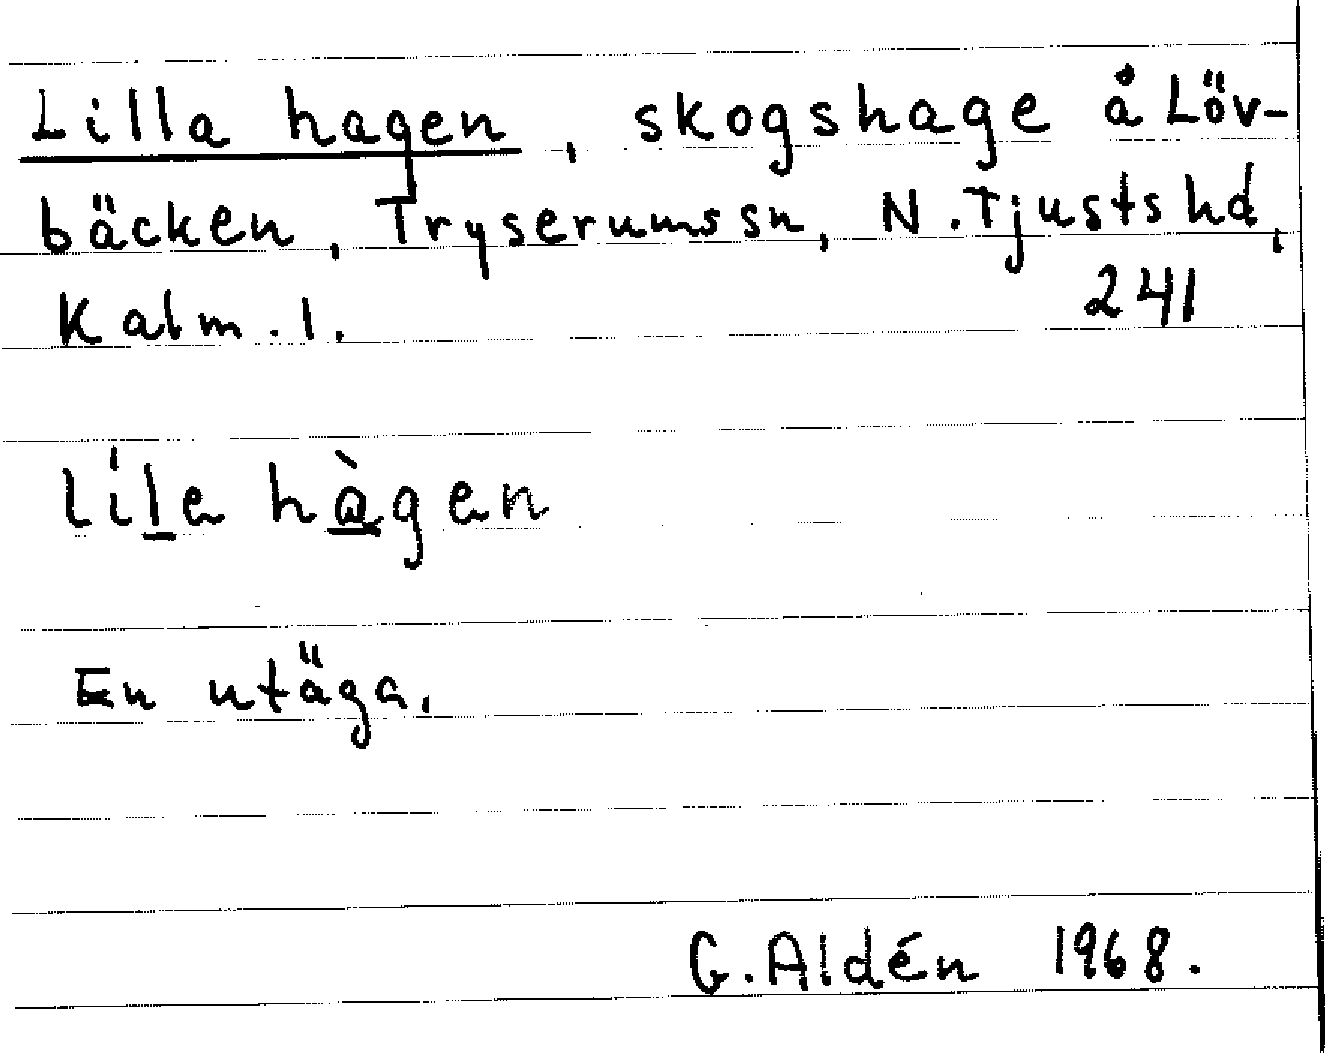 Lilla hagen, skogshage å Löv-
bäcken, Tryserums sn, N. Tjusts hd,
Kalm. l. 241
líla hàgen
En utäga.
G. Aldén 1968.